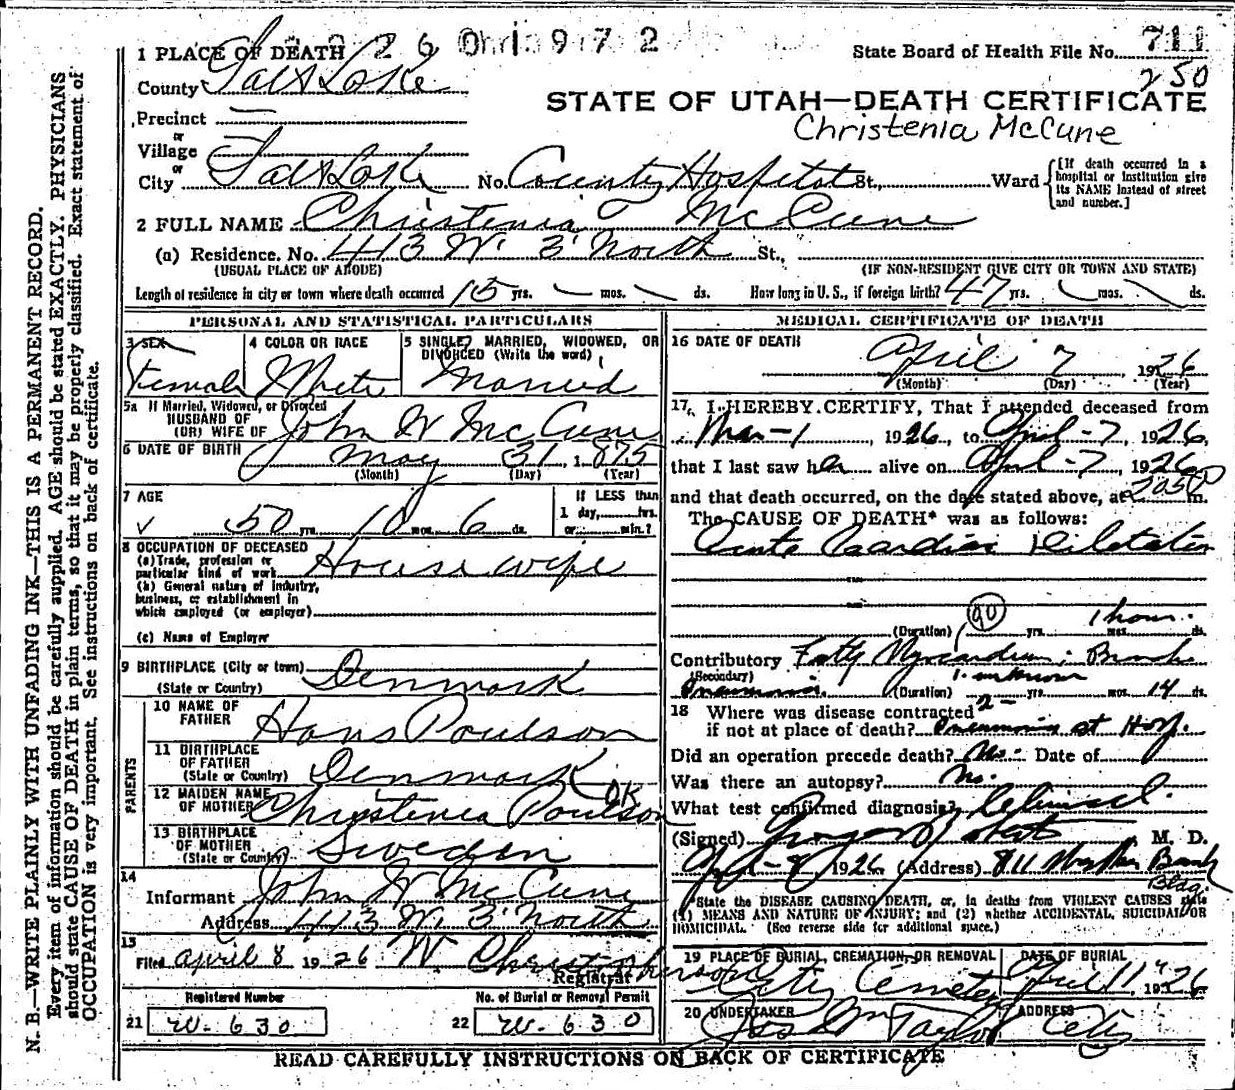 N. B.—WRITE PLAINLY WITH UNFADING INK—THIS IS A PERMANENT RECORD.
Every item of information should be carefully supplied. AGE should be stated EXACTLY. PHYSICIANS
should state CAUSE OF DEATH in plain terms, so that it may be properly classified. Exact statement of
OCCUPATION is very important. See instructions on back of certificate.
1 PLACE OF DEATH
State Board of Health File No. 711
250
County Salt Lake
STATE OF UTAH—DEATH CERTIFICATE
Christenia McCune
Precinct
or
Village
or
City Salt Lake No. County Hospital St., Ward
[If death occurred in a
hospital or institution give
its NAME instead of street
and number.]
2 FULL NAME Christenia McCune
(a) Residence. No. 413 W. 3' North St.,
(USUAL PLACE OF ABODE) (IF NON-RESIDENT GIVE CITY OR TOWN AND STATE)
Length of residence in city or town where death occurred 15 yrs. mos. ds. How long in U. S., if foreign birth? 47 yrs. mos. ds.
PERSONAL AND STATISTICAL PARTICULARS
3 SEX
Female
4 COLOR OR RACE
White
5 SINGLE, MARRIED, WIDOWED, OR
DIVORCED (Write the word)
Married
5a If Married, Widowed, or Divorced
HUSBAND OF
(OR) WIFE OF John W McCune
6 DATE OF BIRTH May 31, 1875
(Month) (Day) (Year)
7 AGE
50 yrs. 10 mos. 6 ds.
If LESS than
1 day, hrs.
or min.?
8 OCCUPATION OF DECEASED
(a) Trade, profession or
particular kind of work Housewife
(b) General nature of industry,
business, or establishment in
which employed (or employer)
(c) Name of Employer
9 BIRTHPLACE (City or town) Denmark
(State or Country)
PARENTS
10 NAME OF
FATHER Hans Poulson
11 BIRTHPLACE
OF FATHER
(State or Country) Denmark
12 MAIDEN NAME
OF MOTHER Christenia Poulson OK
13 BIRTHPLACE
OF MOTHER
(State or Country) Sweden
14
Informant John W McCune
Address 413 W. 3' North
15
Filed April 8 1926 W Christopherson
Registrar
Registered Number No. of Burial or Removal Permit
21 W-630 22 W-630
MEDICAL CERTIFICATE OF DEATH
16 DATE OF DEATH
April 7, 1926
(Month) (Day) (Year)
17, I HEREBY CERTIFY, That I attended deceased from
Mar-1, 1926, to April-7, 1926,
that I last saw her alive on April-7, 1926
and that death occurred, on the date stated above, at 2050 m.
The CAUSE OF DEATH* was as follows:
Acute Cardiac Dilatation
90
(Duration) yrs. 1 hour. mos. ds.
Contributory Fatty Myocardium; Broncho
(Secondary) 1-unknown
Pneumonia. (Duration) yrs. mos. 14 ds.
18 Where was disease contracted 2-
if not at place of death? Pneumonia at Hosp.
Did an operation precede death? No. Date of
Was there an autopsy? No.
What test confirmed diagnosis? Clinical.
(Signed) M. D.
April-8, 1926 (Address) 811 Walker Bank
Bldg.
*State the DISEASE CAUSING DEATH, or, in deaths from VIOLENT CAUSES state
(1) MEANS AND NATURE OF INJURY; and (2) whether ACCIDENTAL, SUICIDAL OR
HOMICIDAL. (See reverse side for additional space.)
19 PLACE OF BURIAL, CREMATION, OR REMOVAL
City Cemetery
DATE OF BURIAL
April 11", 1926
20 UNDERTAKER
Jos Wm Taylor
ADDRESS
City
READ CAREFULLY INSTRUCTIONS ON BACK OF CERTIFICATE